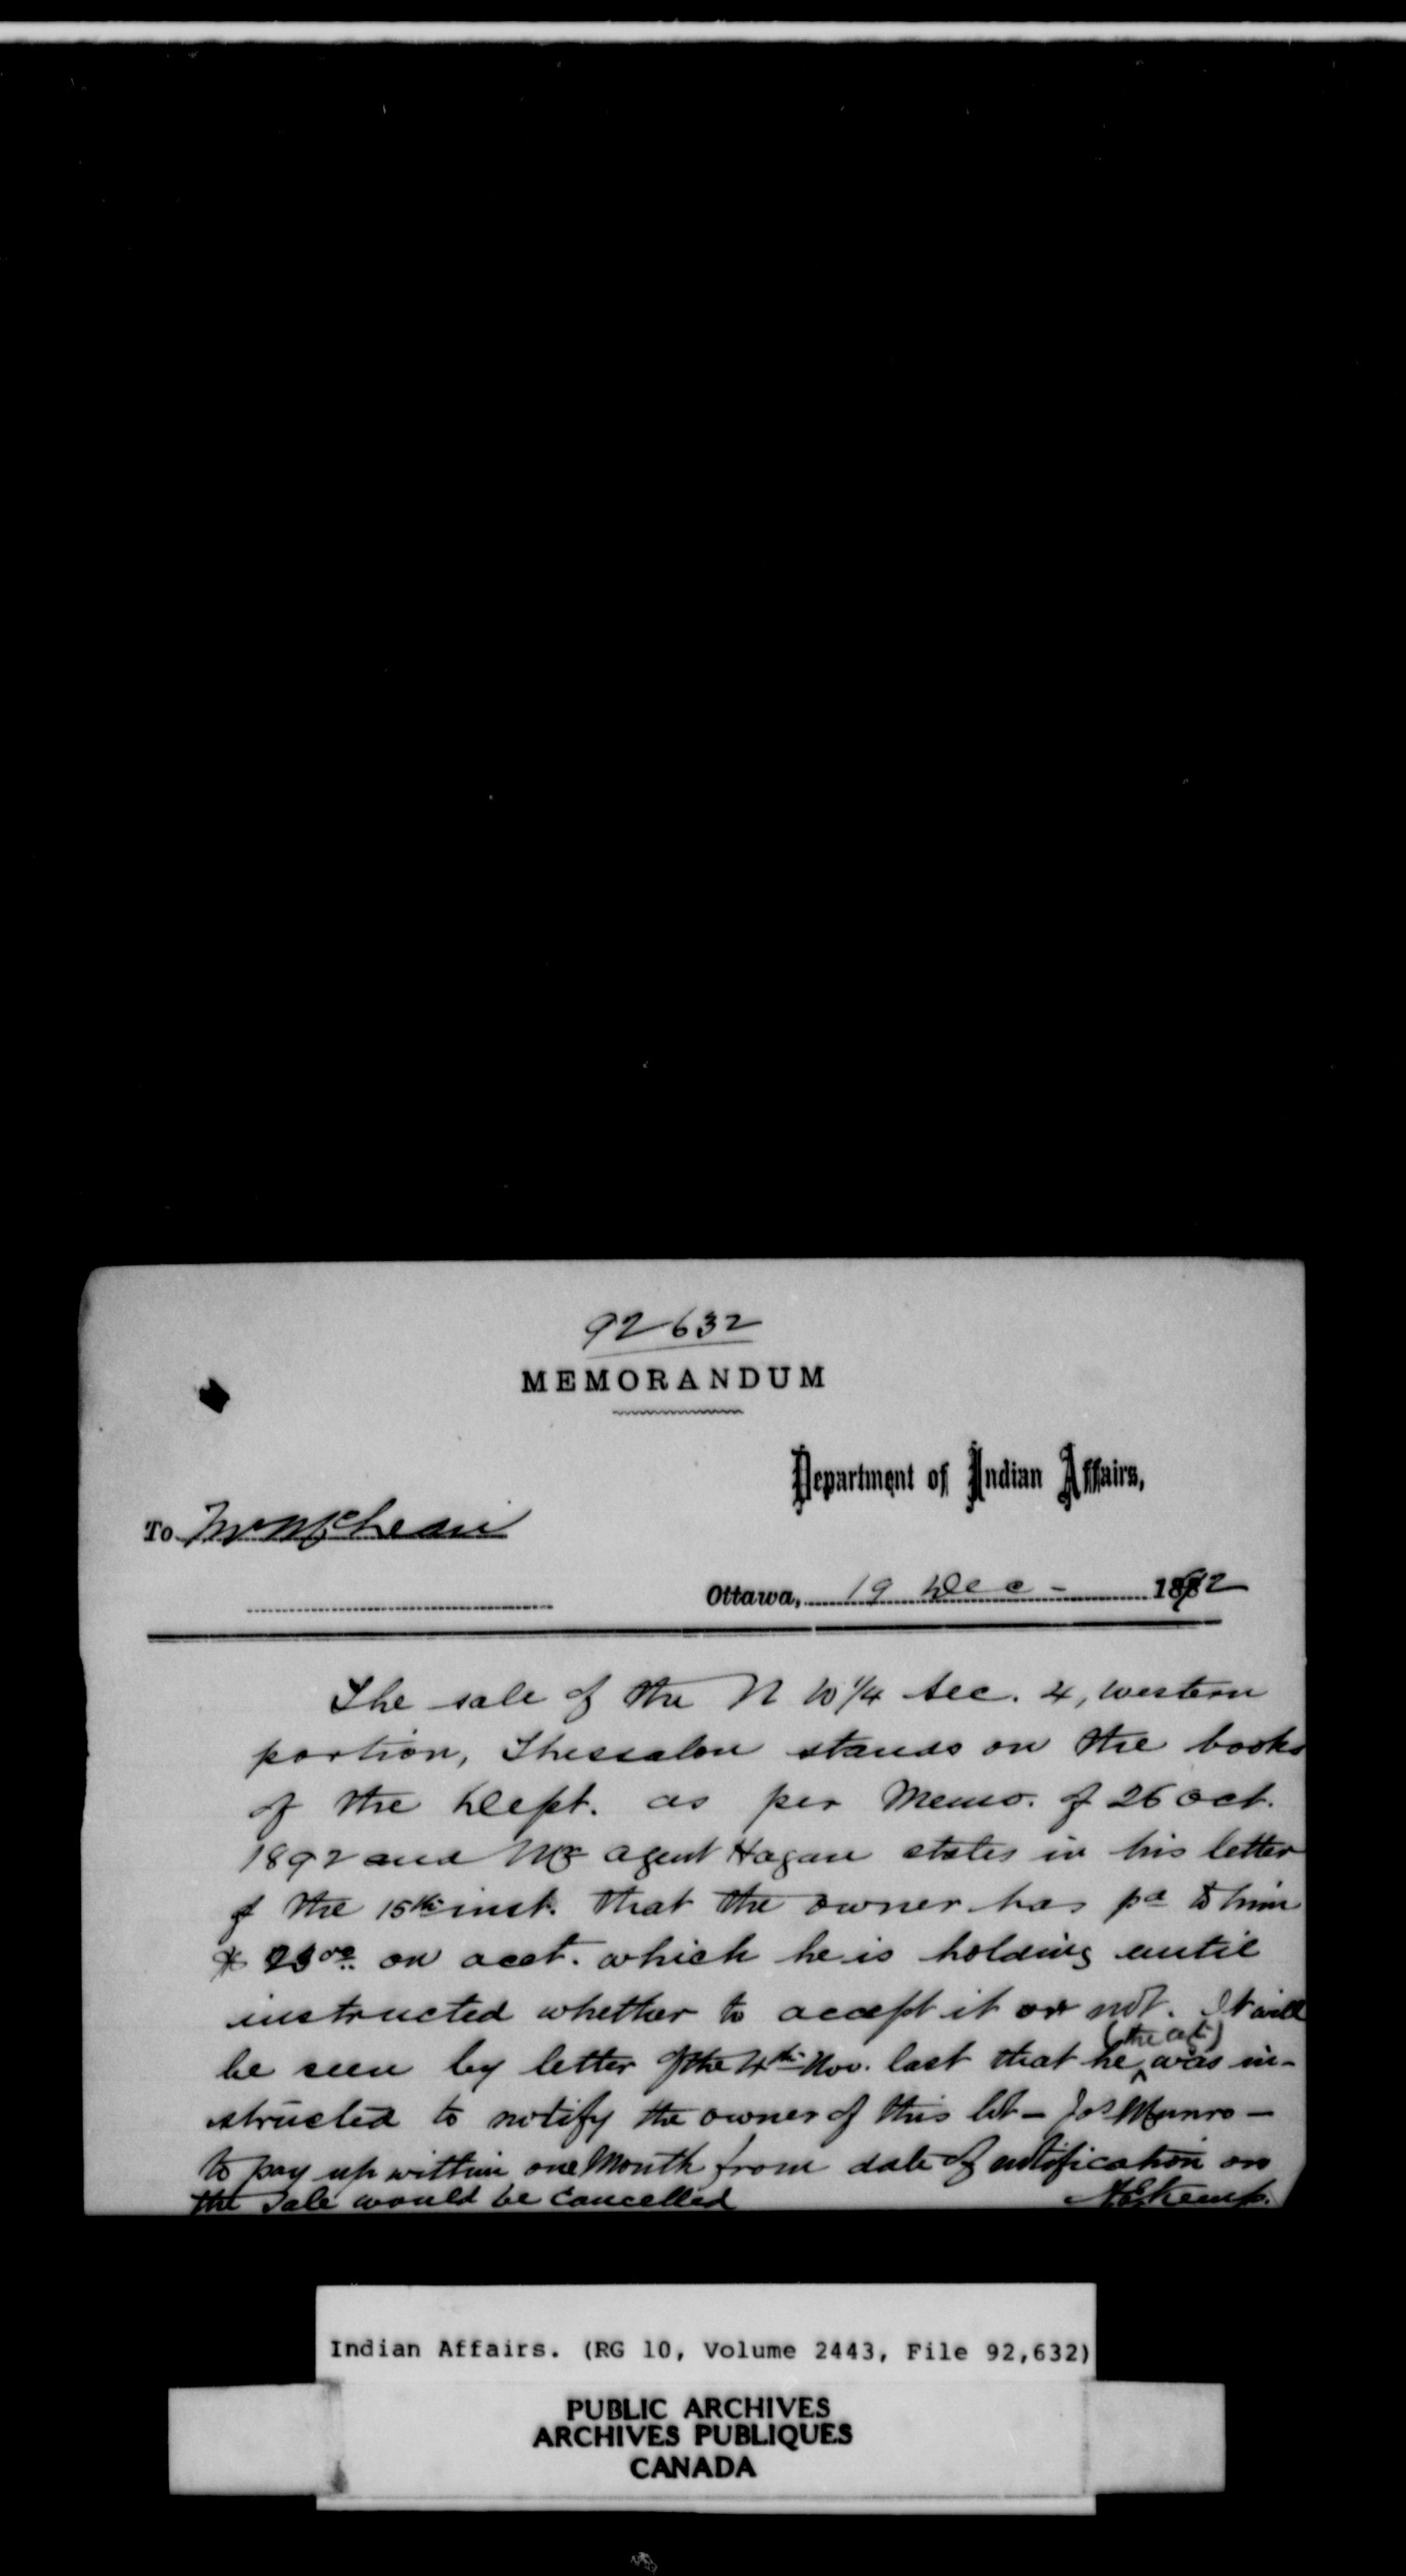 92632
MEMORANDUM
Department of Indian Affairs,
To Mr McLean
Ottawa, 19 Dec - 1892
The sale of the N W 1/4 Sec. 4, western
portion, Thessalon stands on the books
of the Dept. as per Memo. of 26 Oct.
1892 and Mr agent Hagan states in his letter
of the 15th inst. that the owner has pd to him
$ 25 00 on acct. which he is holding until
instructed whether to accept it or not. It will
be seen by letter of the 4th Nov. last that he (the agt) was in-
structed to notify the owner of this lot - Jos Munro -
to pay up within one Month from date of notification or
the Sale would be cancelled
Kemp.
Indian Affairs. (RG 10, Volume 2443, File 92,632)
PUBLIC ARCHIVES
ARCHIVES PUBLIQUES
CANADA